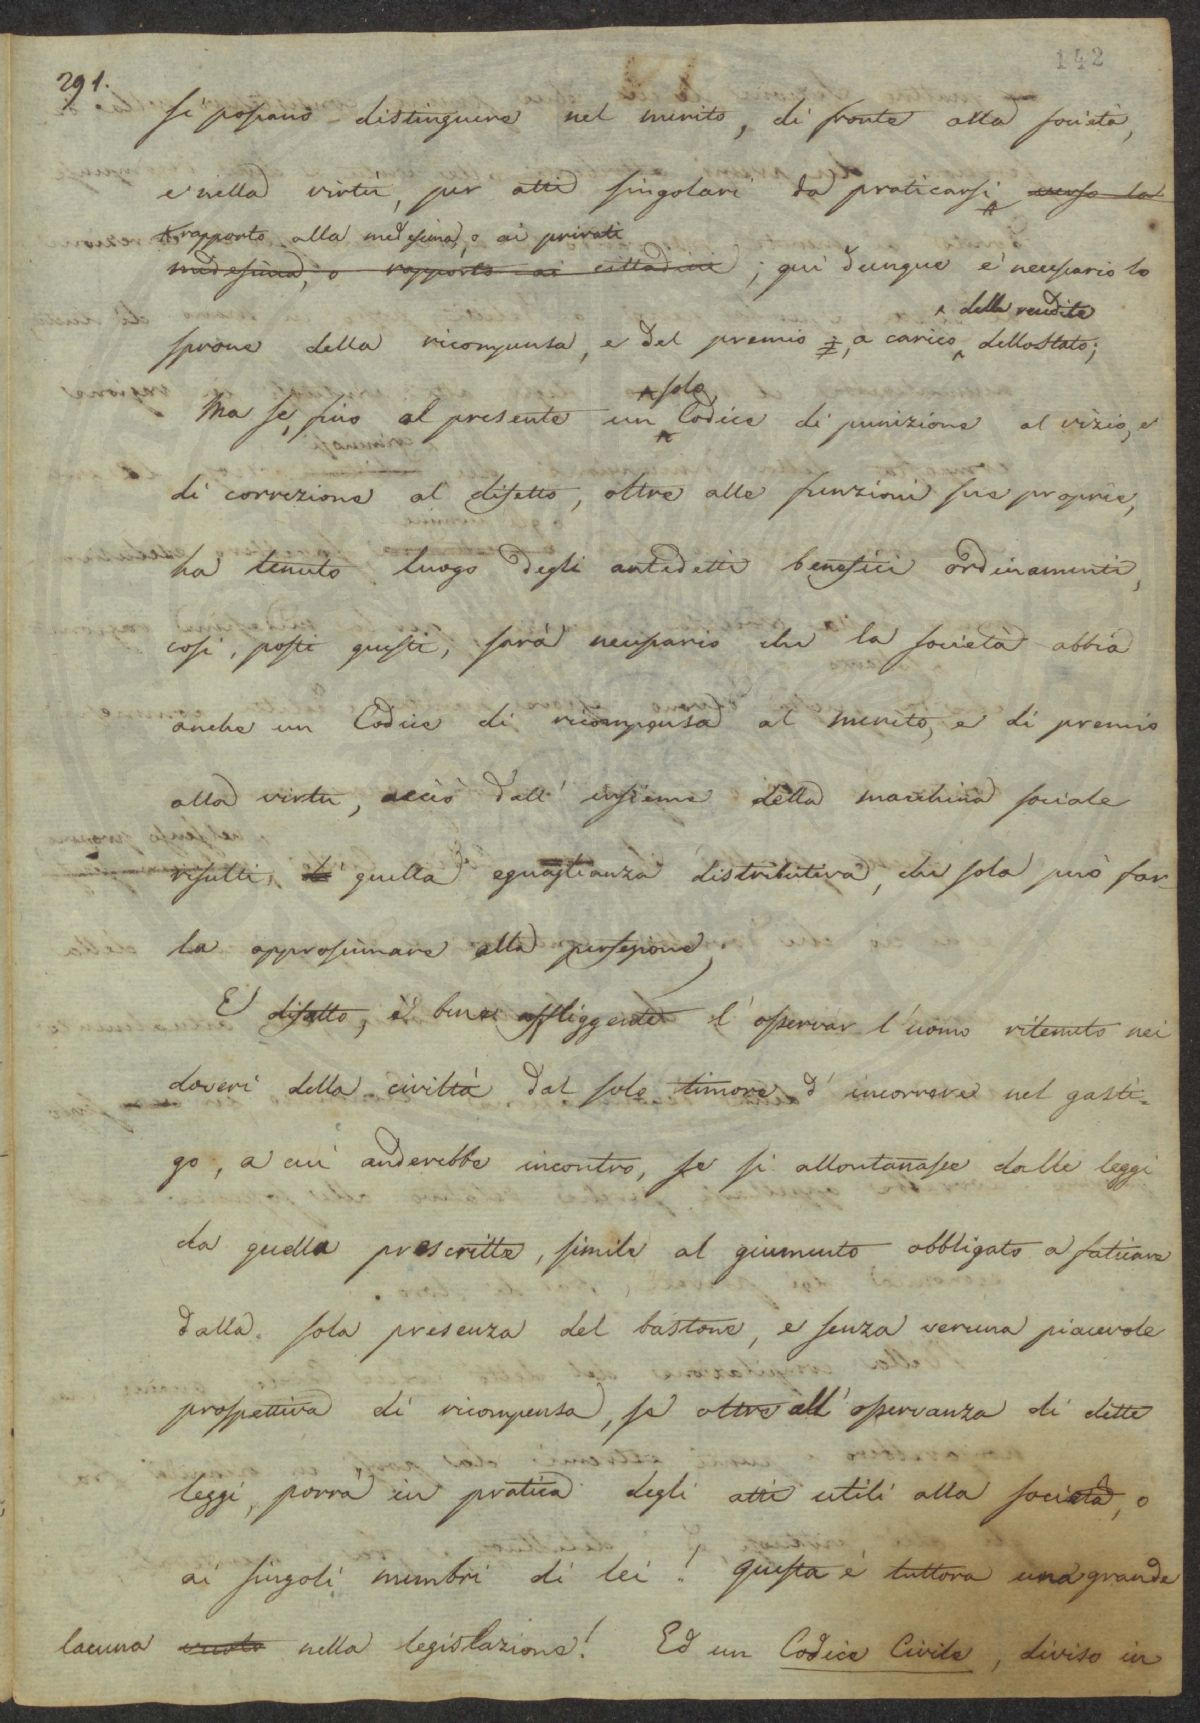 142
291.
si possano distinguere nel merito, di fronte alla società,
e nella virtù, per atti singolari da praticarsi verso la
rapporto alla medesima, o ai privati
medesima, o rapporto ai cittadini; quì dunque è necessario lo
della rendita
sprone della ricompensa, e del premio, a carico dello Stato;
solo
Ma se, fino al presente un Codice di punizione al vizio, e
di correzione al difetto, oltre alle funzioni sue proprie,
ha tenuto luogo degli antedetti benefici ordinamenti,
così, posti questi, sarà necessario che la società abbia
anche un Codice di ricompensa al merito, e di premio
alla virtù, acciò dall'insieme della macchina sociale
risulti, quella eguaglianza distributiva, che sola può far-
la approssimare alla perfezione,
E difatto, è bene affliggente l'osservar l'uomo ritenuto nei
doveri della civiltà dal solo timore d'incorrere nel gasti-
go, a cui anderebbe incontro, se si allontanasse dalle leggi
da quella prescritte, simile al giumento obbligato a faticare
dalla sola presenza del bastone, e senza veruna piacevole
prospettiva di ricompensa, se oltre all'osservanza di dette
leggi, porrà in pratica degli atti utili alla società, o
ai singoli membri di lei! Questa è tuttora una grande
lacuna vuoto nella legislazione! Ed un Codice Civile, diviso in